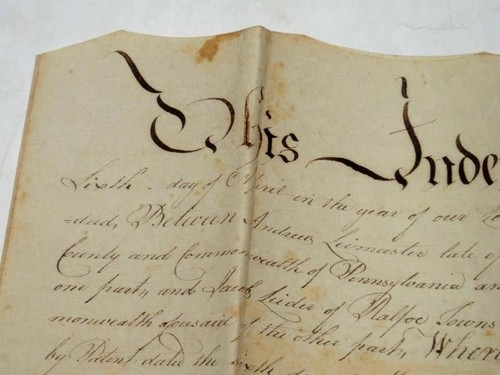 This Inde
Sixth day of April in the year of our
-dred, Between Andrew Leimaster late of
County and Commonwealth of Pennsylvania an
one part, and Jacob Lider of Ralpoe Towns
monwealth aforesaid of the other part, Wher
by Patent dated the sixth